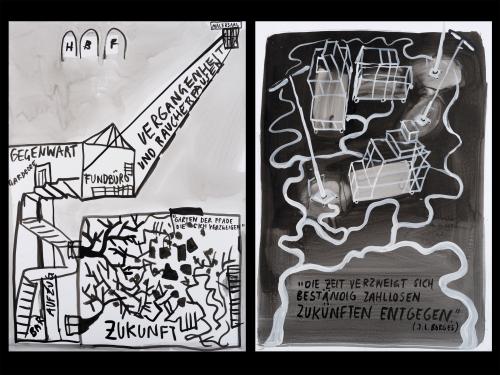 MALERSAAL
H B F
VERGANGENHEIT
UND RAUCHERPAUSEN
GEGENWART
GARDEROBE
FUNDBÜRO
"GARTEN DER PFADE
DIE SICH VERZWEIGEN"
BAR
AUFZUG
ZUKUNFT
"DIE ZEIT VERZWEIGT SICH
BESTÄNDIG ZAHLLOSEN
ZUKÜNFTEN ENTGEGEN."
(J.L. BORGES)